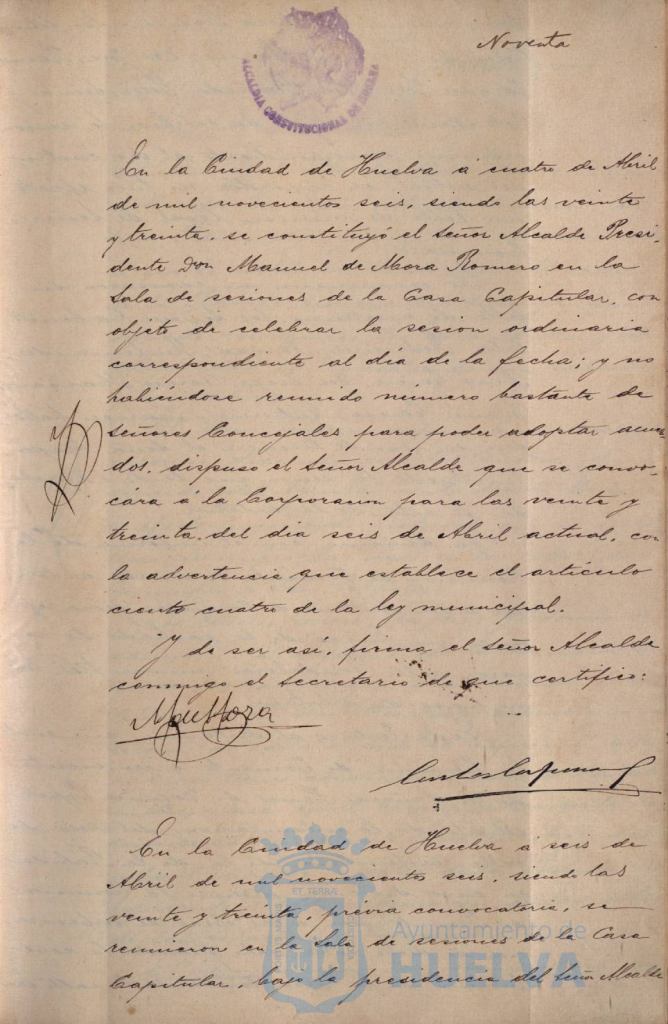 Noventa
ALCALDIA CONSTITUCIONAL DE HUELVA
En la Ciudad de Huelva á cuatro de Abril
de mil novecientos seis, siendo las veinte
y treinta, se constituyó el Señor Alcalde Presi-
dente Don Manuel de Mora Romero en la
Sala de sesiones de la Casa Capitular, con
objeto de celebrar la sesion ordinaria
correspondiente al dia de la fecha; y no
habiéndose reunido número bastante de
señores Concejales para poder adoptar acuer-
dos, dispuso el Señor Alcalde que se convo-
cára á la Corporacion para las veinte y
treinta del dia seis de Abril actual, con
la advertencia que establece el artículo
ciento cuatro de la ley municipal.
Y de ser así, firma el Señor Alcalde
conmigo el Secretario de que certifico:
En la Ciudad de Huelva á seis de
Abril de mil novecientos seis, siendo las
veinte y treinta, prévia convocatoria, se
reunieron en la Sala de sesiones de la Casa
Capitular, bajo la presidencia del Señor Alcalde
ET TERRÆ
Ayuntamiento de
HUELVA